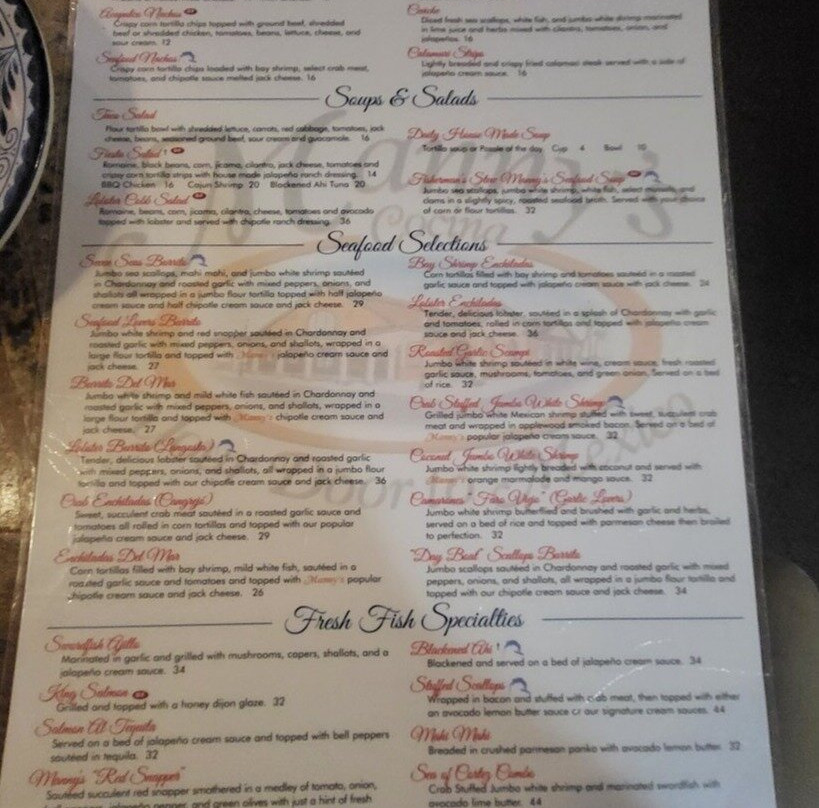 Acapulco Nachos
Crispy corn tortilla chips topped with ground beef, shredded
beef or shredded chicken, tomatoes, beans, lettuce, cheese, and
sour cream. 12
Seafood Nachos
Crispy corn tortilla chips loaded with bay shrimp, select crab meat,
tomatoes, and chipotle sauce melted jack cheese. 16
Ceviche
Diced fresh sea scallops, white fish, and jumbo white shrimp marinated
in lime juice and herbs mixed with cilantro, tomatoes, onion, and
jalapeños. 16
Calamari Strips
Lightly breaded and crispy fried calamari steak served with a side of
jalapeño cream sauce. 16
Soups & Salads
Taco Salad
Flour tortilla bowl with shredded lettuce, carrots, red cabbage, tomatoes, jack
cheese, beans, seasoned ground beef, sour cream and guacamole. 16
Fiesta Salad!
Romaine, black beans, corn, jicama, cilantro, jack cheese, tomatoes and
crispy corn tortilla strips with house made jalapeño ranch dressing. 14
BBQ Chicken 16 Cajun Shrimp 20 Blackened Ahi Tuna 20
Lobster Cobb Salad
Romaine, beans, corn, jicama, cilantro, cheese, tomatoes and avocado
topped with lobster and served with chipotle ranch dressing. 36
Daily House Made Soup
Tortilla soup or Pozole of the day. Cup 4 Bowl 10
Fisherman's Stew Manny's Seafood Soup
Jumbo sea scallops, jumbo white shrimp, white fish, select and
clams in a slightly spicy, roasted seafood broth. Served with your choice
of corn or flour tortillas. 32
Manny's
Cocina
Seafood Selections
Seven Seas Burrito
Jumbo sea scallops, mahi mahi, and jumbo white shrimp sautéed
in Chardonnay and roasted garlic with mixed peppers, onions, and
shallots all wrapped in a jumbo flour tortilla topped with half jalapeño
cream sauce and half chipotle cream sauce and jack cheese. 29
Seafood Lovers Burrito
Jumbo white shrimp and red snapper sautéed in Chardonnay and
roasted garlic with mixed peppers, onions, and shallots, wrapped in a
large flour tortilla and topped with Manny's jalapeño cream sauce and
jack cheese. 27
Burrito Del Mar
Jumbo white shrimp and mild white fish sautéed in Chardonnay and
roasted garlic with mixed peppers, onions, and shallots, wrapped in a
large flour tortilla and topped with Manny's chipotle cream sauce and
jack cheese. 27
Lobster Burrito (Langosta)
Tender, delicious lobster sautéed in Chardonnay and roasted garlic
with mixed peppers, onions, and shallots, all wrapped in a jumbo flour
tortilla and topped with our chipotle cream sauce and jack cheese. 36
Crab Enchiladas (Cangrejo)
Sweet, succulent crab meat sautéed in a roasted garlic sauce and
tomatoes all rolled in corn tortillas and topped with our popular
jalapeño cream sauce and jack cheese. 29
Enchiladas Del Mar
Corn tortillas filled with bay shrimp, mild white fish, sautéed in a
roasted garlic sauce and tomatoes and topped with Manny's popular
chipotle cream sauce and jack cheese. 26
Bay Shrimp Enchiladas
Corn tortillas filled with bay shrimp and tomatoes sautéed in a roasted
garlic sauce and topped with jalapeño cream sauce and jack cheese. 24
Lobster Enchiladas
Tender, delicious lobster, sautéed in a splash of Chardonnay with garlic
and tomatoes, rolled in corn tortillas and topped with jalapeño cream
sauce and jack cheese. 36
Roasted Garlic Scampi
Jumbo white shrimp sautéed in white wine, cream sauce, fresh roasted
garlic sauce, mushrooms, tomatoes, and green onion. Served on a bed
of rice. 32
Crab Stuffed Jumbo White Shrimp
Grilled jumbo white Mexican shrimp stuffed with sweet, succulent crab
meat and wrapped in applewood smoked bacon. Served on a bed of
Manny's popular jalapeño cream sauce. 32
Coconut Jumbo White Shrimp
Jumbo white shrimp lightly breaded with coconut and served with
Manny's orange marmalade and mango sauce. 32
Camarones "Faro Viejo" (Garlic Lovers)
Jumbo white shrimp butterflied and brushed with garlic and herbs,
served on a bed of rice and topped with parmesan cheese then broiled
to perfection. 32
"Day Boat" Scallops Burrito
Jumbo scallops sautéed in Chardonnay and roasted garlic with mixed
peppers, onions, and shallots, all wrapped in a jumbo flour tortilla and
topped with our chipotle cream sauce and jack cheese. 34
Door to Mexico
Fresh Fish Specialties
Swordfish Ajillo
Marinated in garlic and grilled with mushrooms, capers, shallots, and a
jalapeño cream sauce. 34
King Salmon
Grilled and topped with a honey dijon glaze. 32
Salmon Al Tequila
Served on a bed of jalapeño cream sauce and topped with bell peppers
sautéed in tequila. 32
Manny's "Red Snapper"
Sautéed succulent red snapper smothered in a medley of tomato, onion,
jalapeño pepper, and green olives with just a hint of fresh
Blackened Ahi!
Blackened and served on a bed of jalapeño cream sauce. 34
Stuffed Scallops
Wrapped in bacon and stuffed with crab meat, then topped with either
an avocado lemon butter sauce or our signature cream sauces. 44
Mahi Mahi
Breaded in crushed parmesan panko with avocado lemon butter. 32
Sea of Cortez Combo
Crab Stuffed Jumbo white shrimp and marinated swordfish with
avocado lime butter. 44